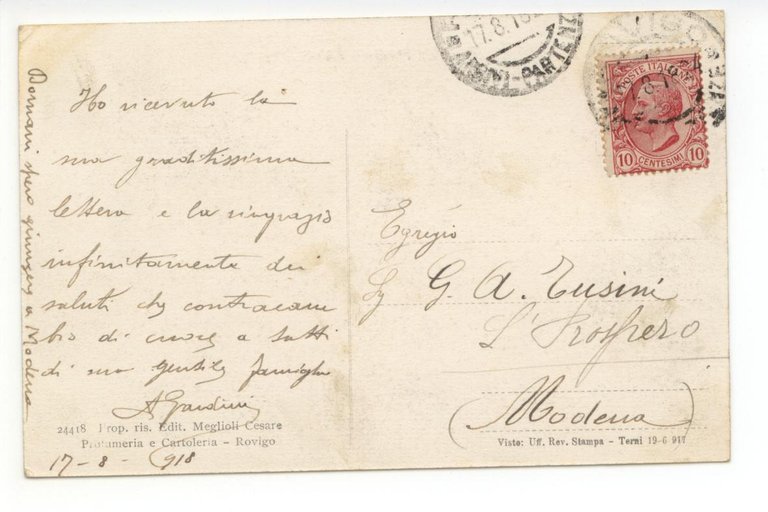 17.8.18
POSTE ITALIANE
10 CENTESIMI 10
Domani spero giungere a Modena
Ho ricevuto la
sua graditissima
lettera e la ringrazio
infinitamente dei
saluti che contraccam
bio di cuore a tutti
di sua gentile famiglia
24418 Prop. ris. Edit. Meglioli Cesare
Profumeria e Cartoleria - Rovigo
17-8-918
Egregio
Sig G. A. Tusini
S. Prospero
(Modena)
Visto: Uff. Rev. Stampa - Terni 19-6 917